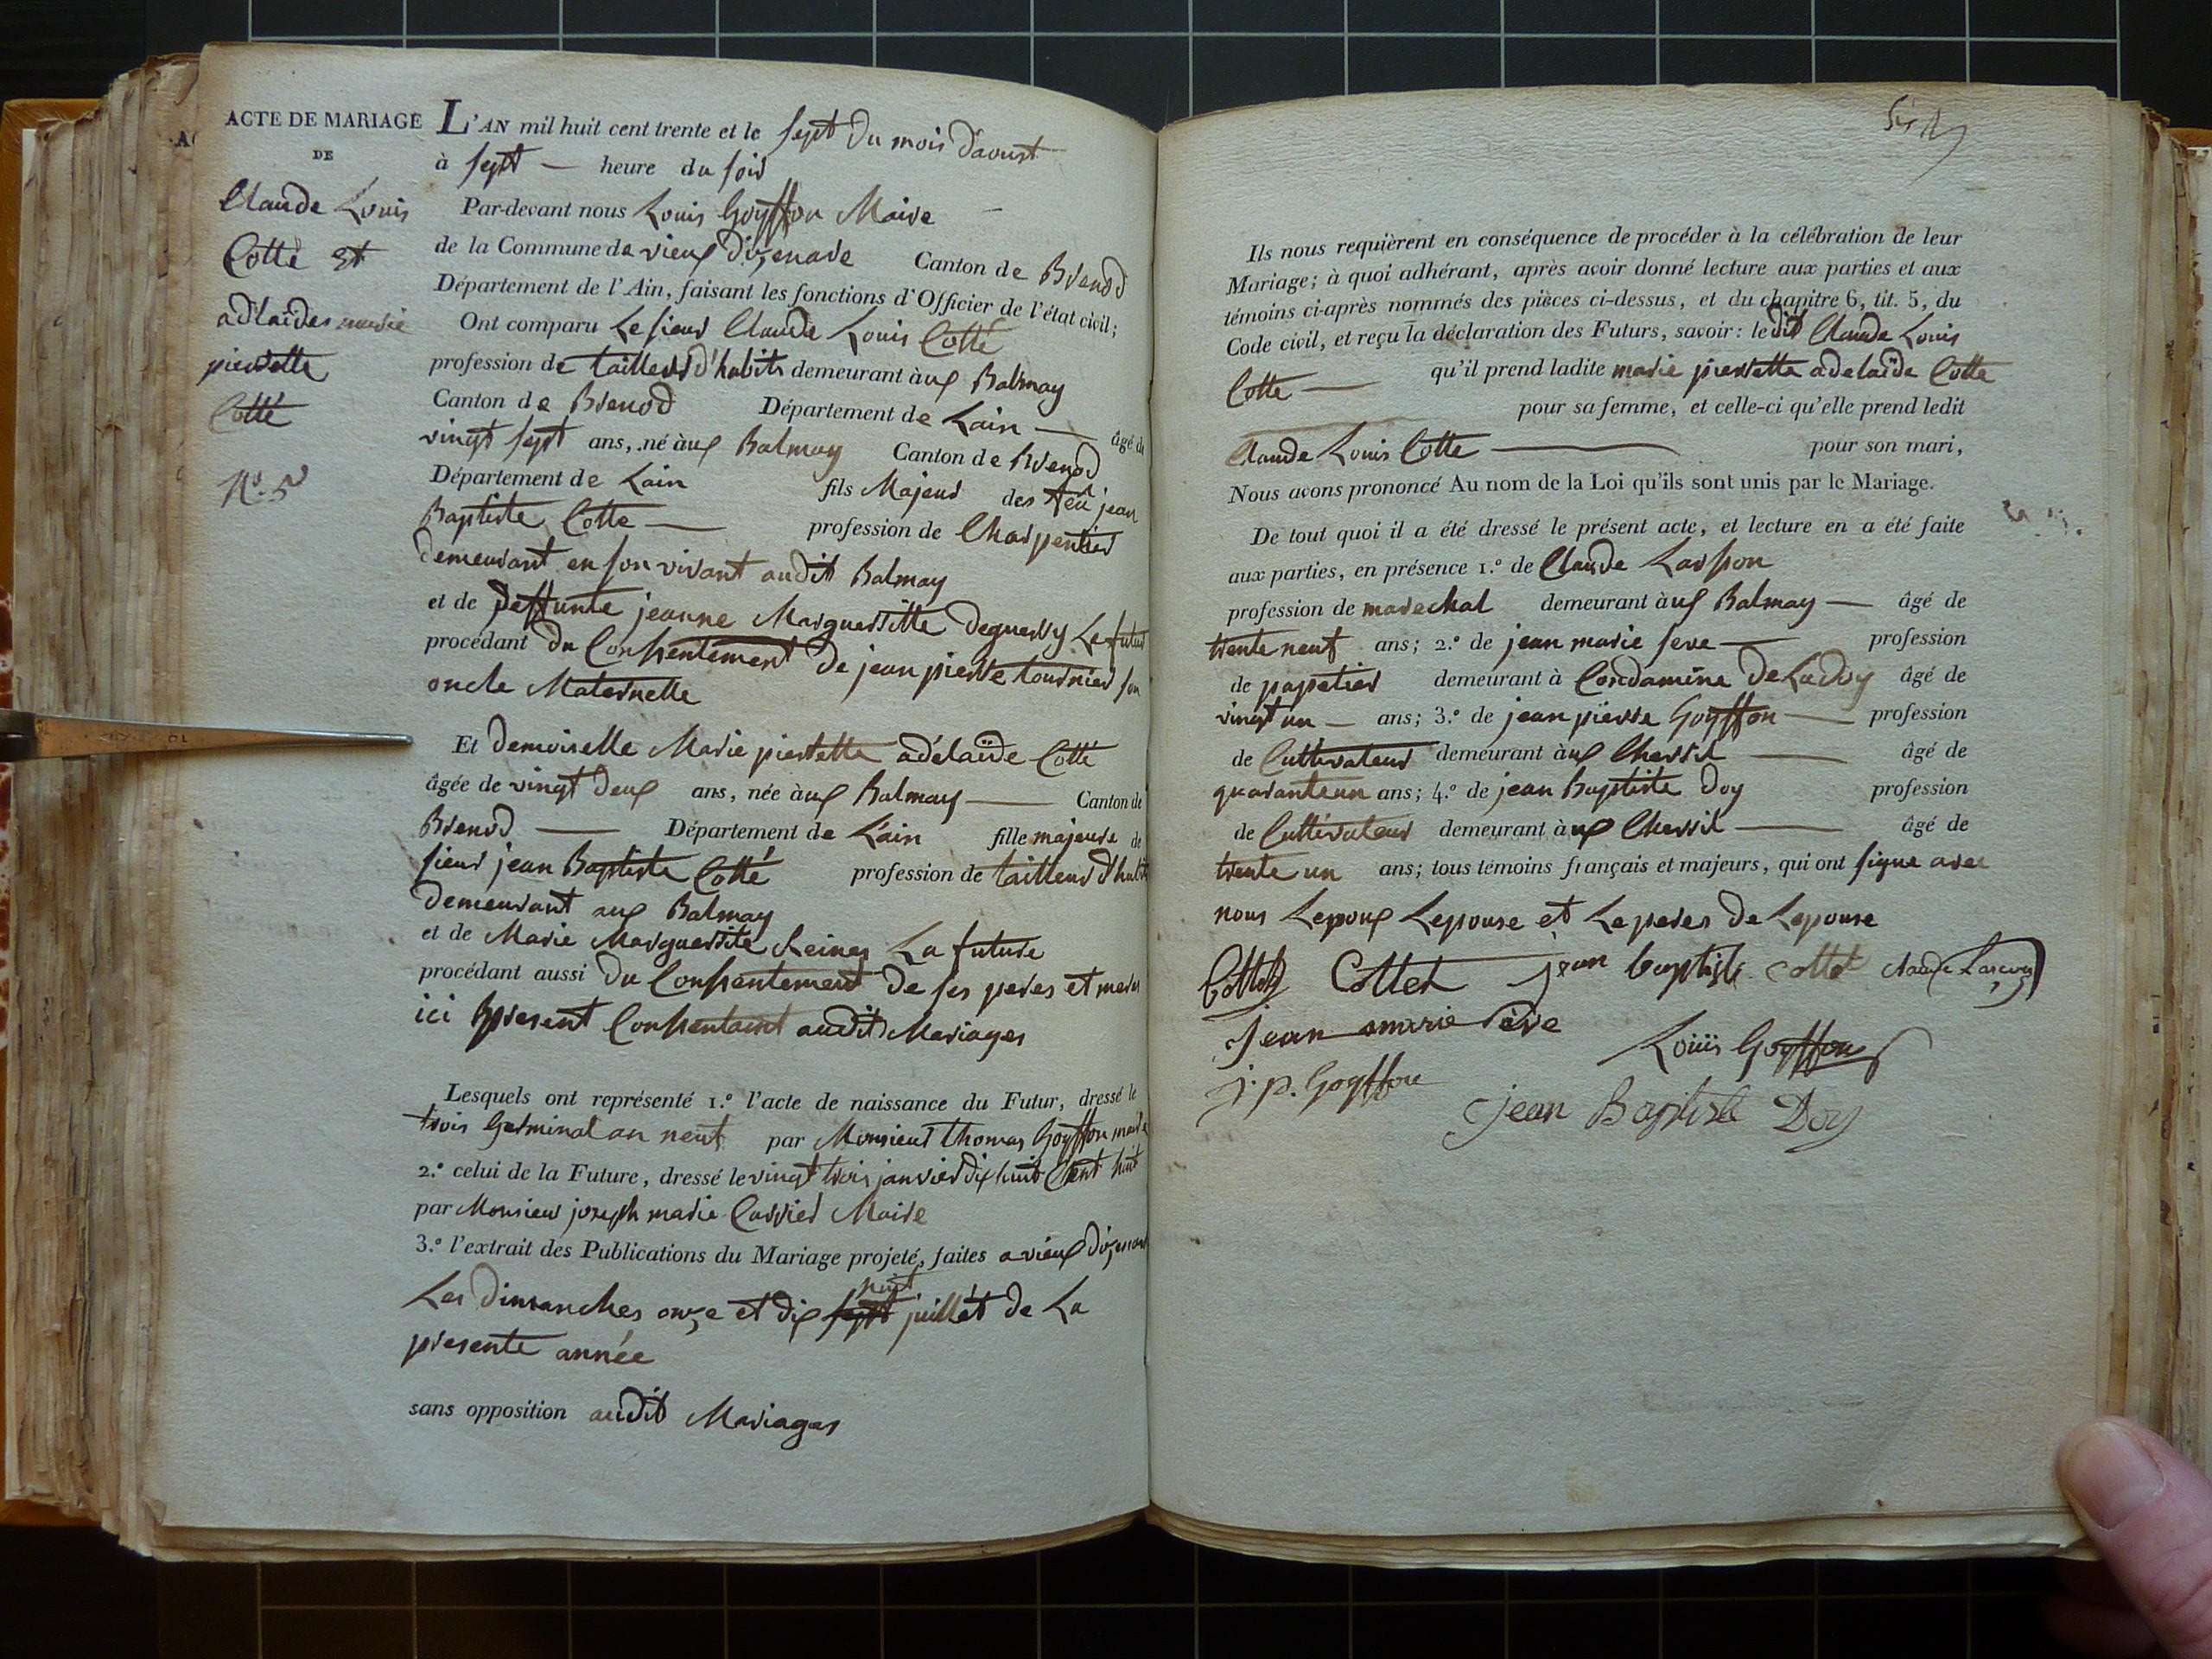 ACTE DE MARIAGE
DE
Claude Louis
Cotte et
adlaides marie
pierrette
Cotté
N.º 5
L'AN mil huit cent trente et le sept du mois d'aoust
à sept — heure du soir
Par-devant nous Louis Goyffon Maire —
de la Commune de vieux d'izenave Canton de Brenod
Département de l'Ain, faisant les fonctions d'Officier de l'état civil;
Ont comparu Le sieur Claude Louis Cotté
profession de tailleur d'habits demeurant àux Balmay
Canton de Brenod Département de Lain — âgé de
vingt sept ans, né àux Balmay Canton de Brenod
Département de Lain fils Majeur des feu jean
Baptiste Cotte — profession de Charpentier
demeurant en son vivant audit Balmay
et de deffunte jeanne Margueritte deguerry Le futur
procédant du Consentement de jean pierre tournier son
oncle Maternelle
Et demoiselle Marie pierrette adélaïde Cotté
âgée de vingt deux ans, née àux Balmay — Canton de
Brenod — Département de Lain fille majeure de
sieur jean Baptiste Cotté profession de tailleur d'habit
demeurant aux Balmay
et de Marie Marguerite Reiney La future
procédant aussi du Consentement de ses peres et meres
ici present Consentant audit Mariages
Lesquels ont représenté 1.º l'acte de naissance du Futur, dressé le
trois Germinal an neuf par Monsieur thomas Goyffon maire
2.º celui de la Future, dressé le vingt trois janvier dix huit Cent huit
par Monsieur joseph marie Carrier Maire
3.º l'extrait des Publications du Mariage projeté, faites a vieux d'izenave
Les dimanches onze et dix sept huit juillet de La
presente année
sans opposition audit Mariages
Ils nous requièrent en conséquence de procéder à la célébration de leur
Mariage; à quoi adhérant, après avoir donné lecture aux parties et aux
témoins ci-après nommés des pièces ci-dessus, et du chapitre 6, tit. 5, du
Code civil, et reçu la déclaration des Futurs, savoir: le dit Claude Louis
Cotte — qu'il prend ladite marie pierrette adelaïde Cotte
pour sa femme, et celle-ci qu'elle prend ledit
Claude Louis Cotte — pour son mari,
Nous avons prononcé Au nom de la Loi qu'ils sont unis par le Mariage.
De tout quoi il a été dressé le présent acte, et lecture en a été faite
aux parties, en présence 1.º de Claude
profession de marechal demeurant àux Balmay — âgé de
trente neuf ans; 2.º de jean marie seve — profession
de papetier demeurant à Condamine de Ladoy âgé de
vingt un — ans; 3.º de jean pierre Goyffon — profession
de Cultivateur demeurant àux Chevril — âgé de
quarante un ans; 4.º de jean Baptiste Doy profession
de Cultivateur demeurant àux Chevril — âgé de
trente un ans; tous témoins français et majeurs, qui ont signe avec
nous Lepoux Lepouse et Le peres de Lepouse
Cottet Cottet jean baptiste cottet claude
jean marie Sève
Louis Goyffon
j. p. Goyffon
jean Baptiste Doy